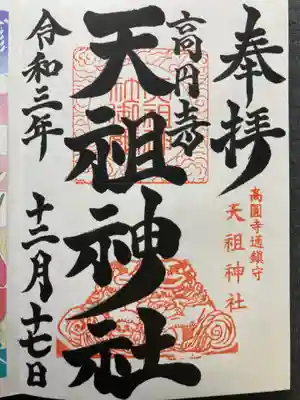 奉拝
高圓寺通鎮守
天祖神社
高円寺
天祖神社
令和三年
十二月十七日